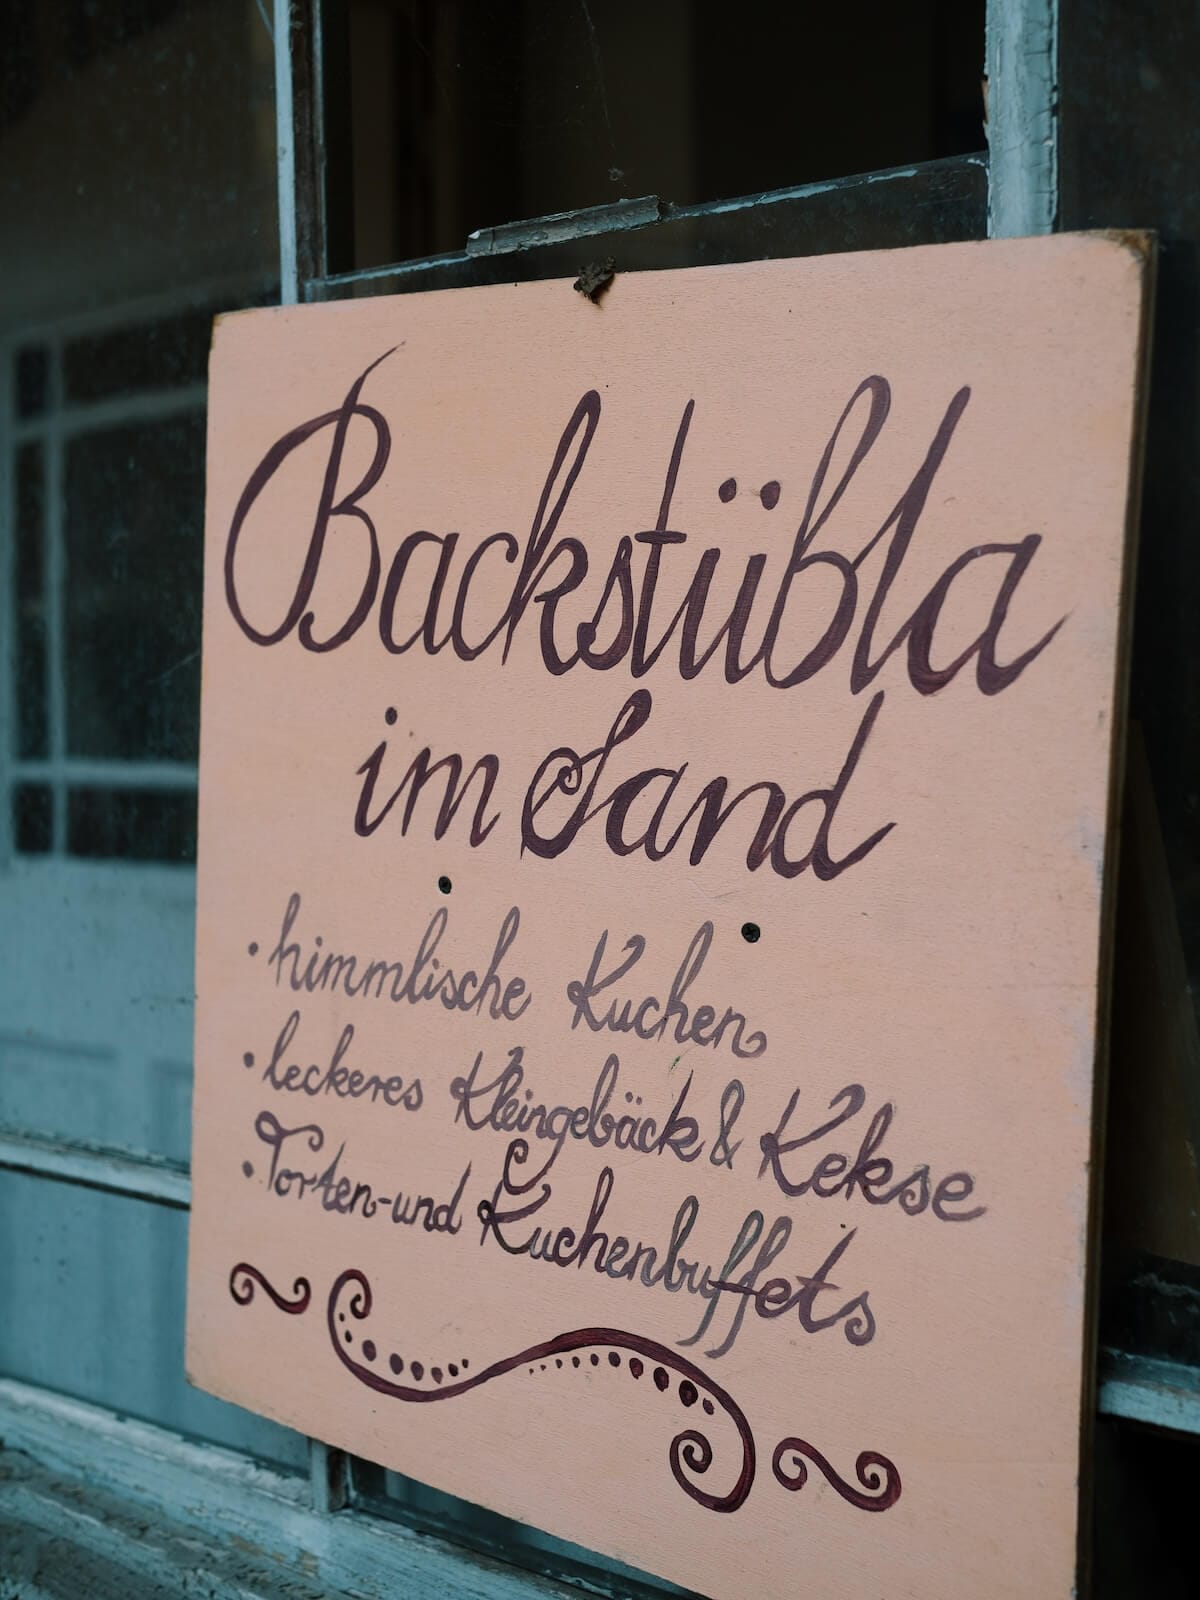 Backstübla
im Sand
· himmlische Kuchen
· leckeres Kleingebäck & Kekse
· Torten-und Kuchenbuffets